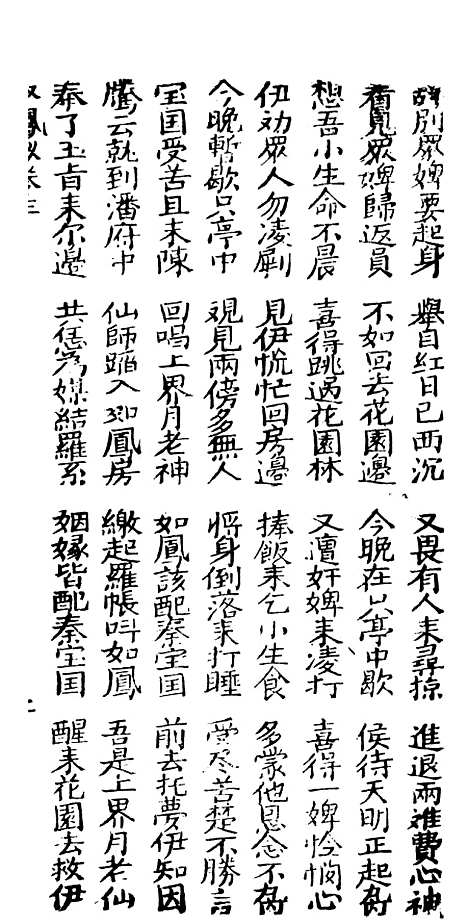 别眾婢要起身 舉目紅日已西沉 又畏有人耒尋掠 進退兩难費心神
看見眾婢歸返員 不如回去花園邊 今晚在只亭中歇 侯待天明正起
想吾小生命不晨 喜得跳過花園林 又遭奸婢耒凌打 喜得一婢怜悯心
伊劝眾人勿凌剧 見伊慌忙回房邊 捧飯耒乞小生食 多蒙他恩念不
今晚暫歇只亭中 覌見兩傍多無人 将身倒落耒打睡 受尽苦楚不勝言
宝国受苦且未陳 回唱上界月老神 如鳳該配秦宝国 前去托夢伊知因
騰云就到潘府中 仙師踏入如鳳房 繳起羅帳叫如鳳 吾是上界月老仙
奉了玉旨耒尔邊 共恁為媒結羅系 姻緣皆配秦宝国 醒耒花園去救伊